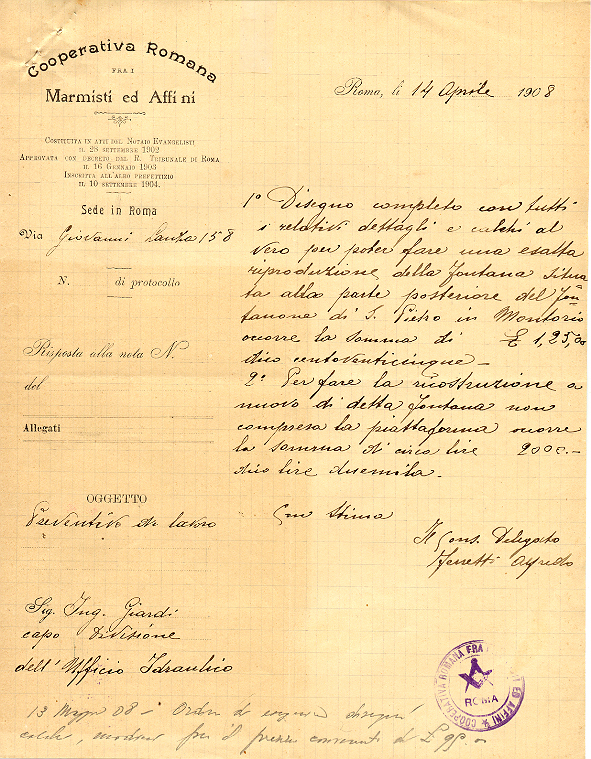 Cooperativa Romana
FRA I
Marmisti ed Affini
COSTITUITA IN ATTI DEL NOTAIO EVANGELISTI
IL 28 SETTEMBRE 1902
APPROVATA CON DECRETO DEL R. TRIBUNALE DI ROMA
IL 16 GENNAIO 1903
INSCRITTA ALL'ALBO PREFETTIZIO
IL 10 SETTEMBRE 1904.
Sede in Roma
Via Giovanni Lanza 158
N. di protocollo
Risposta alla nota N.
del
Allegati
OGGETTO
Preventivo di lavoro
Sig. Ing. Giardi
capo Divisione
dell'Ufficio Idraulico
Roma, li 14 Aprile 1908
1° Disegno completo con tutti
i relativi dettagli e calchi al
vero per poter fare una esatta
riproduzione della fontana situa
ta alla parte posteriore del fon
tanone di S. Pietro in Montorio
occorre la somma di £ 125,00
dico centoventicinque -
2° Per fare la ricostruzione a
nuovo di detta fontana non
compresa la piattaforma occorre
la somma di circa lire 2000.-
dico lire duemila.
Con stima
Il Cons. Delegato
Ferretti Alfredo
COOPERATIVA ROMANA FRA I MARMISTI ED AFFINI
ROMA
13 Magg. 08 - Ordine di disegni
calchi, per il prezzo di £ 99.